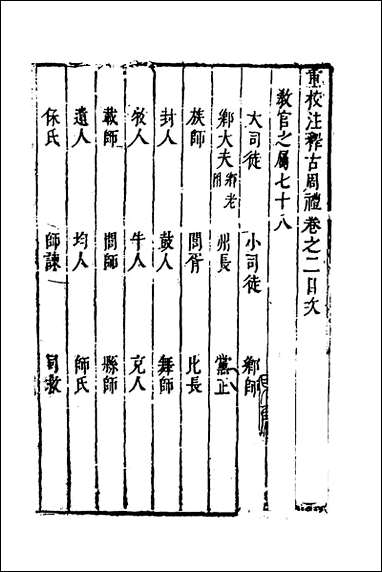 重校注釋古周禮卷之二目次
教官之屬七十八
大司徒 小司徒 鄉師
鄉大夫 鄉老附 州長 黨正
族師 閭胥 比長
封人 鼓人 舞師
牧人 牛人 充人
載師 閭師 縣師
遺人 均人 師氏
保氏 師諫 司救